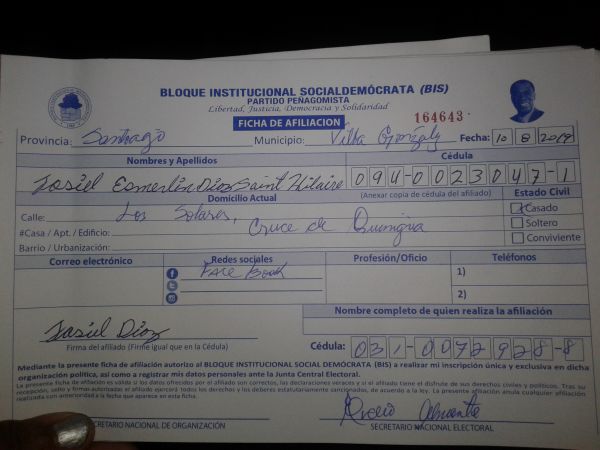 BLOQUE INSTITUCIONAL SOCIALDEMÓCRATA (BIS)
PARTIDO PEÑAGOMISTA
Libertad, Justicia, Democracia y Solidaridad
FICHA DE AFILIACION
164643
Provincia: Santiago Municipio: Villa Gonzalz Fecha: 10 8 2019
Nombres y Apellidos Cédula
Jasiel Esmerlin Dioz Saint Hilaire 094-0023047-1
Domicilio Actual (Anexar copia de cédula del afiliado) Estado Civil
Calle: Los Solares, Cruce de Quinigua Casado
#Casa / Apt. / Edificio: Soltero
Barrio / Urbanización: Conviviente
Correo electrónico Redes sociales Profesión/Oficio Teléfonos
Face Book 1)
2)
Nombre completo de quien realiza la afiliación
Jasiel Dioz
Firma del afiliado (Firme igual que en la Cédula) Cédula: 031-0072928-8
Mediante la presente ficha de afiliación autorizo al BLOQUE INSTITUCIONAL SOCIAL DEMÓCRATA (BIS) a realizar mi inscripción única y exclusiva en dicha
organización política, así como a registrar mis datos personales ante la Junta Central Electoral.
La presente ficha de afiliación es valida si los datos ofrecidos por el afiliado son correctos, las declaraciones veraces y si el afiliado tiene el disfrute de sus derechos civiles y políticos. Tras su
recepción, sello y firmas autorizadas el afiliado ejercerá todos los derechos y los deberes estatutariamente sancionados, de acuerdo a la ley. La presente afiliación anula cualquier afiliación
realizada con anterioridad a la fecha que aparece en esta ficha.
SECRETARIO NACIONAL DE ORGANIZACIÓN SECRETARIO NACIONAL ELECTORAL